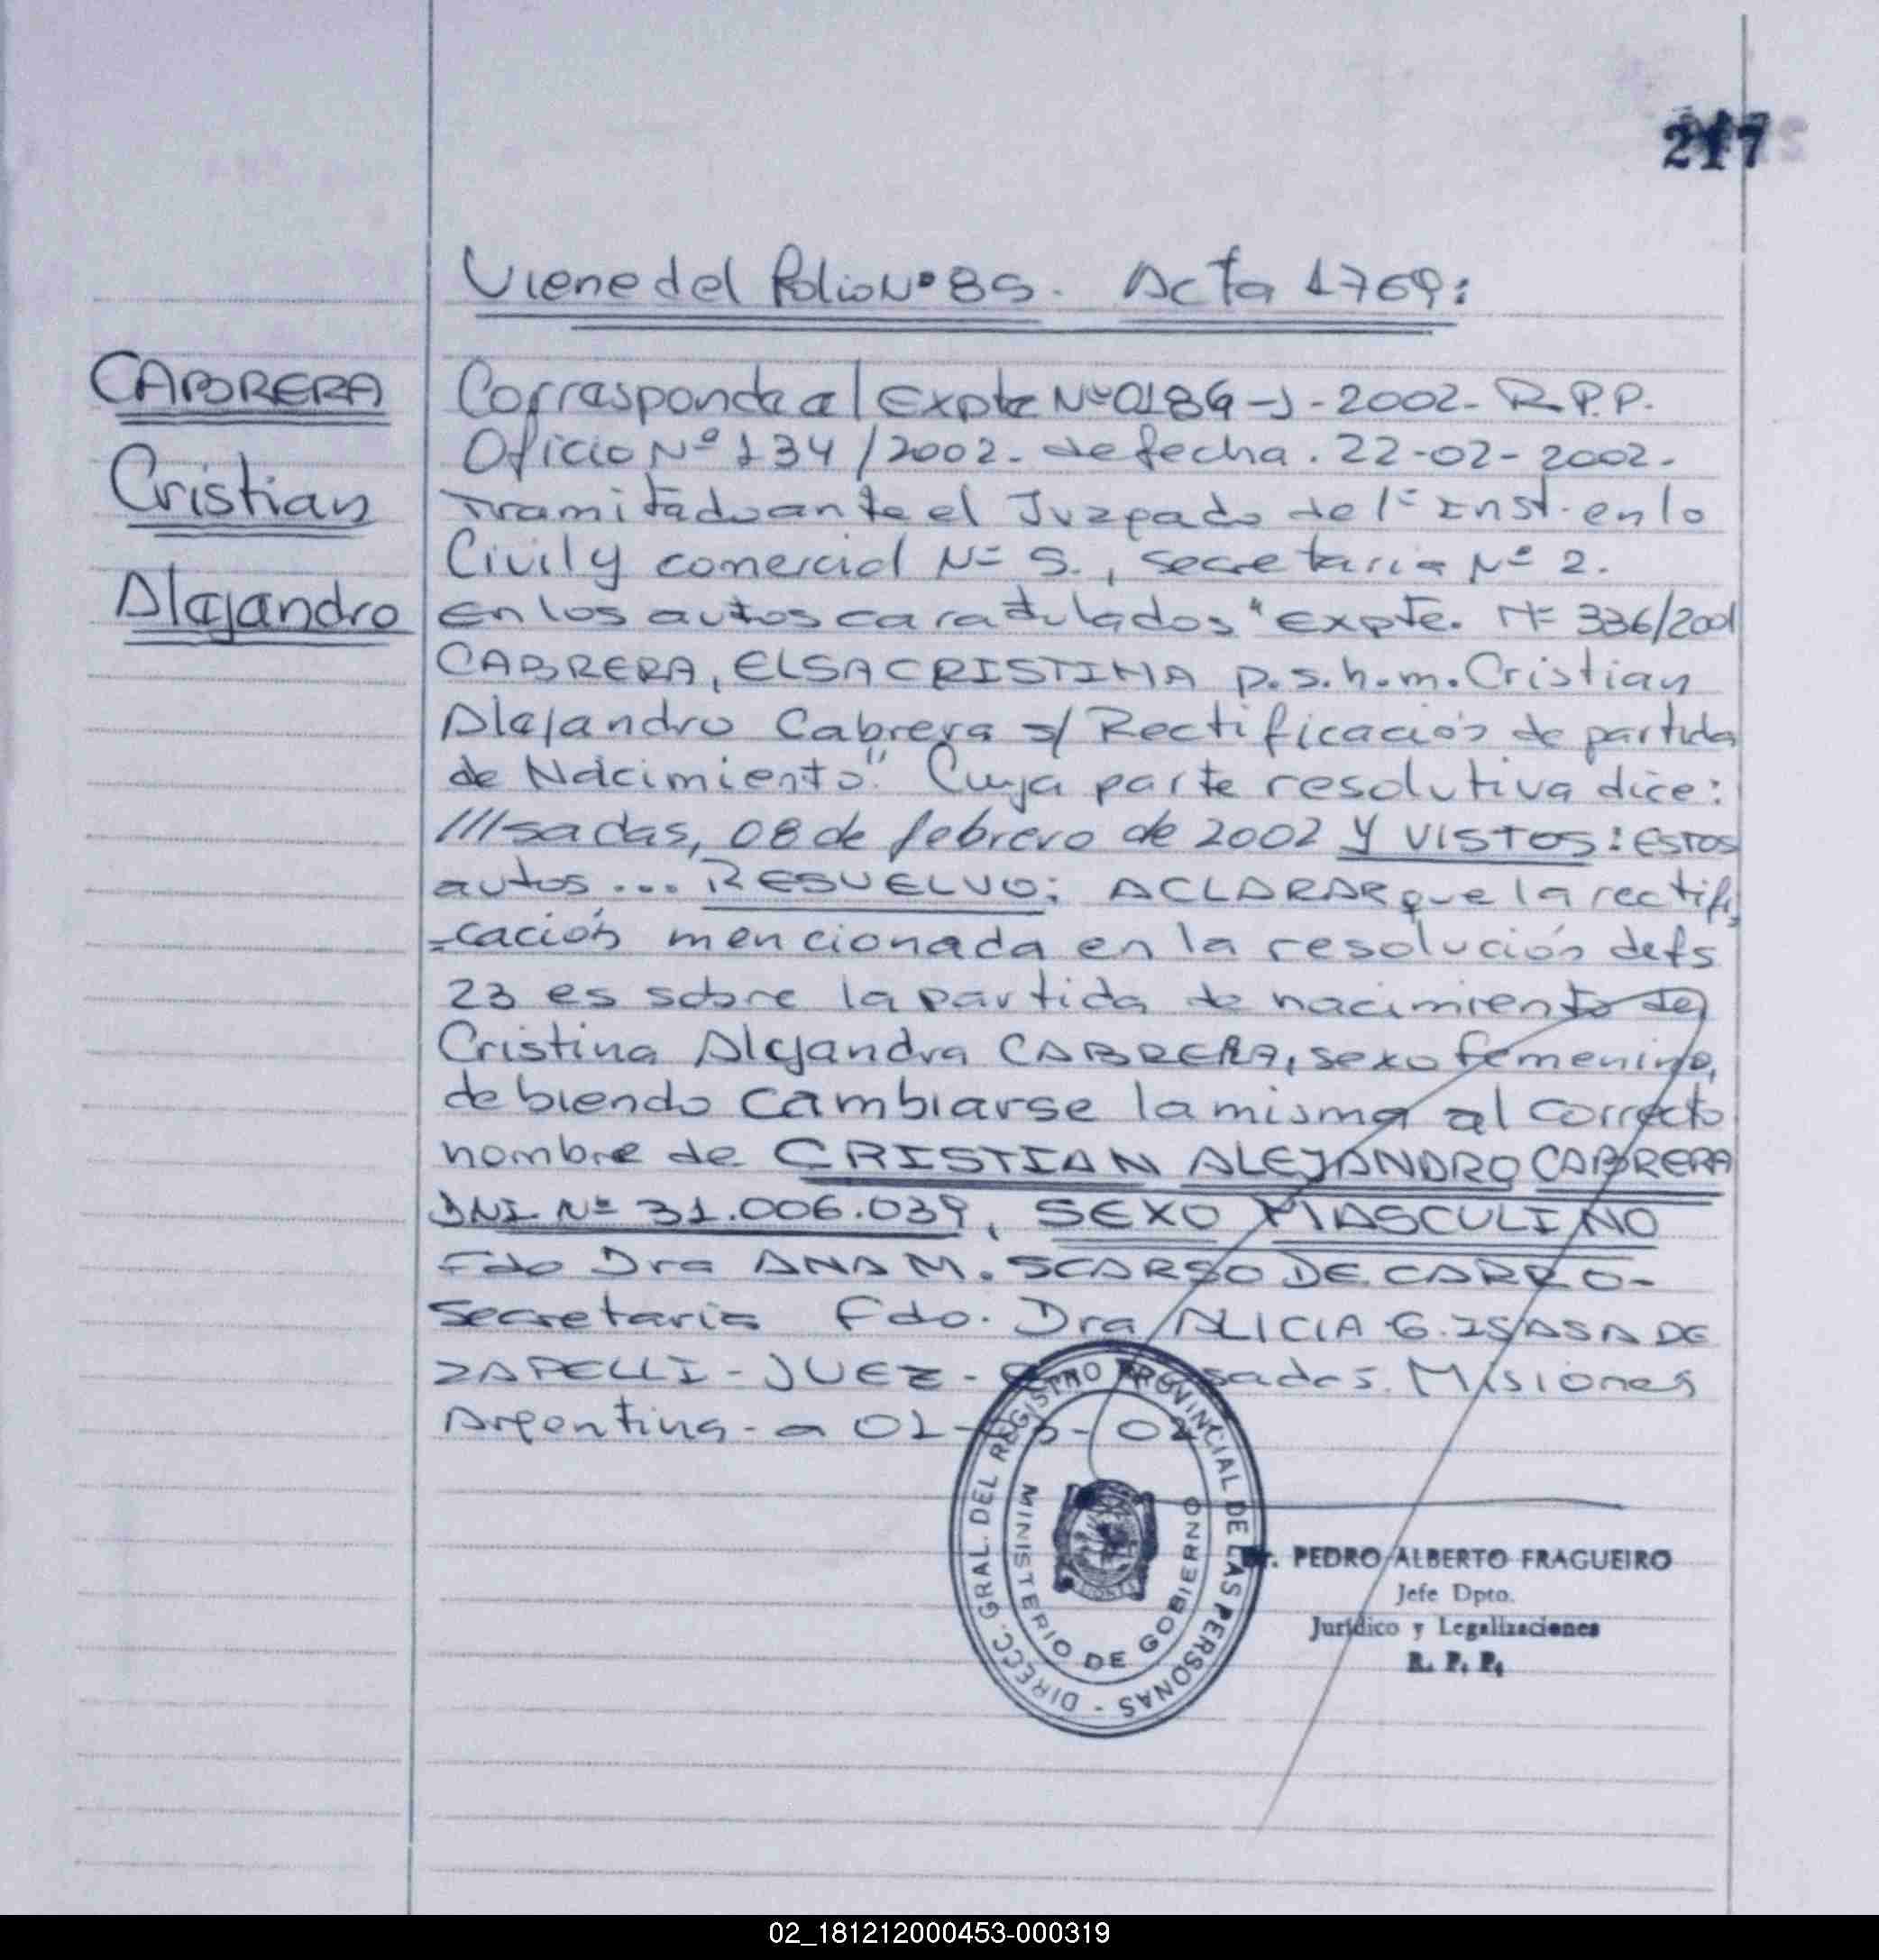 217
Viene del folio Nº 85. Acta 1769:
CABRERA
Cristian
Alejandro
Corresponde al Expte Nº 0186-J-2002- R.P.P.
Oficio Nº 134/2002- de fecha. 22-02-2002-
Tramitado ante el Juzgado de 1º Inst. en lo
Civil y comercial Nº 5., secretaria Nº 2.
En los autos caratulados "Expte. Nº 336/2001
CABRERA, ELSA CRISTINA p.s.h.m. Cristian
Alejandro Cabrera s/ Rectificación de partida
de Nacimiento" Cuya parte resolutiva dice:
///sadas, 08 de febrero de 2002 Y VISTOS: ESTOS
autos ... RESUELVO: ACLARAR que la rectifi
=cación mencionada en la resolución de fs
23 es sobre la partida de nacimiento de
Cristina Alejandra CABRERA, sexo femenino,
debiendo cambiarse la misma al correcto
nombre de CRISTIAN ALEJANDRO CABRERA
DNI Nº 31.006.039, SEXO MASCULINO
Fdo Dra ANA M. SCARSO DE CARRO-
Secretaria Fdo. Dra ALICIA G. ISASA DE
ZAPELLI - JUEZ - Misiones
Argentina - a 01-
DIRECC. GRAL. DEL REGISTRO PROVINCIAL DE LAS PERSONAS -
MINISTERIO DE GOBIERNO
Dr. PEDRO ALBERTO FRAGUEIRO
Jefe Dpto.
Jurídico y Legalizaciones
R. P. P.
02_181212000453-000319